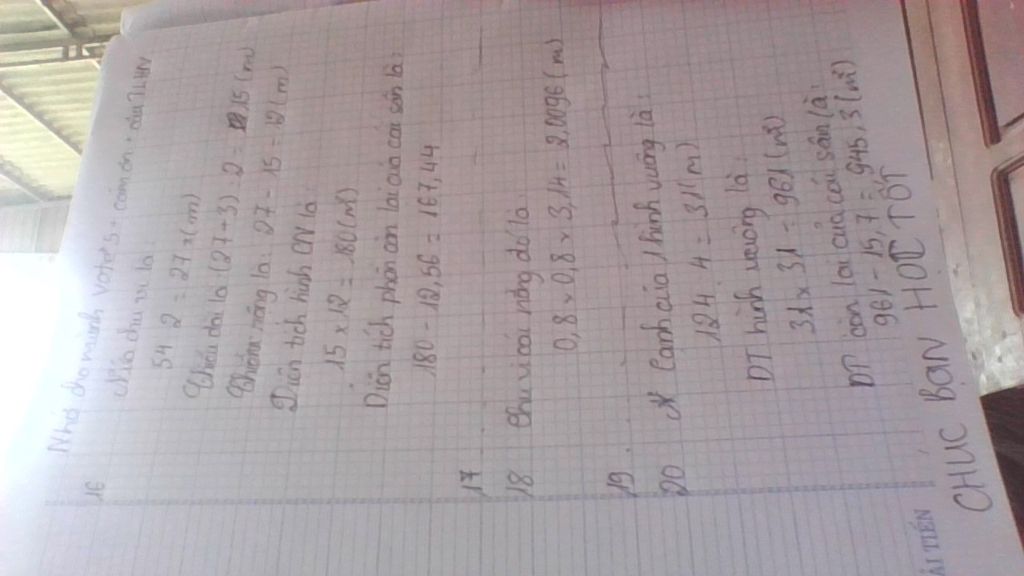 Nhớ cho mình Vote 5* + cảm ơn + câu TLHN
16
Nửa chu vi là:
54 : 2 = 27 (m)
Chiều dài là (27+3) : 2 = 15 (m)
Chiều rộng là: 27 - 15 = 12 (m)
Diện tích hình CN là:
15 x 12 = 180 (m²)
Diện tích phần còn lại của cái sân là:
180 - 12,56 = 167,44
17
18 Chu vi cái nong đó là
0,8 x 0,8 x 3,14 = 2,0096 (m)
19
20 Cạnh của 1 hình vuông là:
124 : 4 = 31 (m)
DT hình vuông là:
31 x 31 = 961 (m²)
DT còn lại của cái sân là:
961 - 15,7 = 945,3 (m²)
ẢI TIẾN
CHÚC BẠN HỌC TỐT